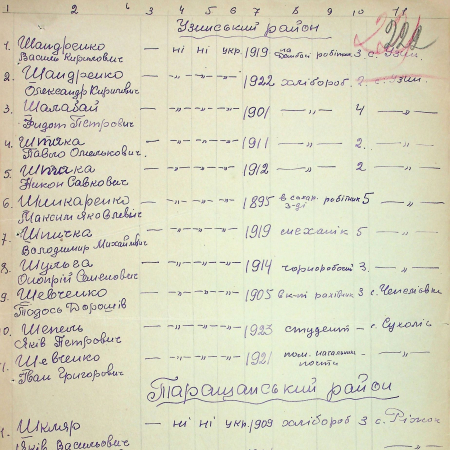 1 2 3 4 5 6 7 8 9 10 11
Узинський район
1. Шандренко — ні ні укр. 1919 робітник 3 с. Узин.
Василь Кирилович
2. Шандренко — „ — „ — „ — 1922 хлібороб. 2. с. Узин.
Олександр Кирилович
3. Шалабай — „ — „ — „ — 1901 — „ — 4 — „ —
Федот Петрович
4.Штяка — „ — „ — „ — 1911 — „ — 2. — „ —
Павло Омелькович.
5. Штяка — „ — „ — „ — 1912 — „ — 2 — „ —
Никон Савкович
6. Шинкаренко — „ — „ — „ — 1895 в сахар. робітник 5 — „ —
Максим Яковлевіч з-ді
7. Шпичка — „ — „ — „ — 1919 механік 5 — „ —
Володимир Михайлович
8. Шульга — „ — „ — „ — 1914 чорноробочий 3. — „ —
Семенович
9. Шевченко — „ — „ — „ — 1905 рахівник 3 с.
Тодось
0. Шепель — „ — „ — „ — 1923 студент — с.
Яків Петрович
1. Шевченко — „ — „ — „ — 1921 пом. — „ —
Іван Григорович пошти
Таращанський район
1. Шкляр — ні ні укр. 1909 хлібороб 3 с.
Яків Васильович